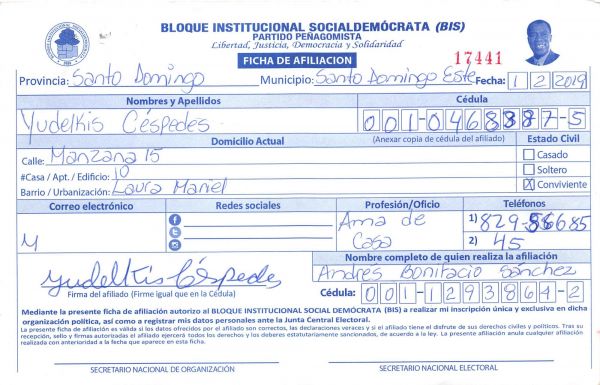 BLOQUE INSTITUCIONAL SOCIALDEMÓCRATA (BIS)
PARTIDO PEÑAGOMISTA
Libertad, Justicia, Democracia y Solidaridad
FICHA DE AFILIACION
17441
Provincia: Santo Domingo Municipio: Santo Domingo Este Fecha: 1 2 2019
Nombres y Apellidos Cédula
Yudelkis Céspedes 001-0468887-5
Domicilio Actual (Anexar copia de cédula del afiliado) Estado Civil
Calle: Manzana 15 Casado
#Casa / Apt. / Edificio: 10 Soltero
Barrio / Urbanización: Laura Mariel X Conviviente
Correo electrónico Redes sociales Profesión/Oficio Teléfonos
Ama de 1) 829-
Casa 2) 45
Nombre completo de quien realiza la afiliación
Andres Bonifacio Sánchez
Yudelkis Céspedes
Firma del afiliado (Firme igual que en la Cédula) Cédula: 001-1293864-2
Mediante la presente ficha de afiliación autorizo al BLOQUE INSTITUCIONAL SOCIAL DEMÓCRATA (BIS) a realizar mi inscripción única y exclusiva en dicha
organización política, así como a registrar mis datos personales ante la Junta Central Electoral.
La presente ficha de afiliación es válida si los datos ofrecidos por el afiliado son correctos, las declaraciones veraces y si el afiliado tiene el disfrute de sus derechos civiles y políticos. Tras su
recepción, sello y firmas autorizadas el afiliado ejercerá todos los derechos y los deberes estatutariamente sancionados, de acuerdo a la ley. La presente afiliación anula cualquier afiliación
realizada con anterioridad a la fecha que aparece en esta ficha.
SECRETARIO NACIONAL DE ORGANIZACIÓN SECRETARIO NACIONAL ELECTORAL